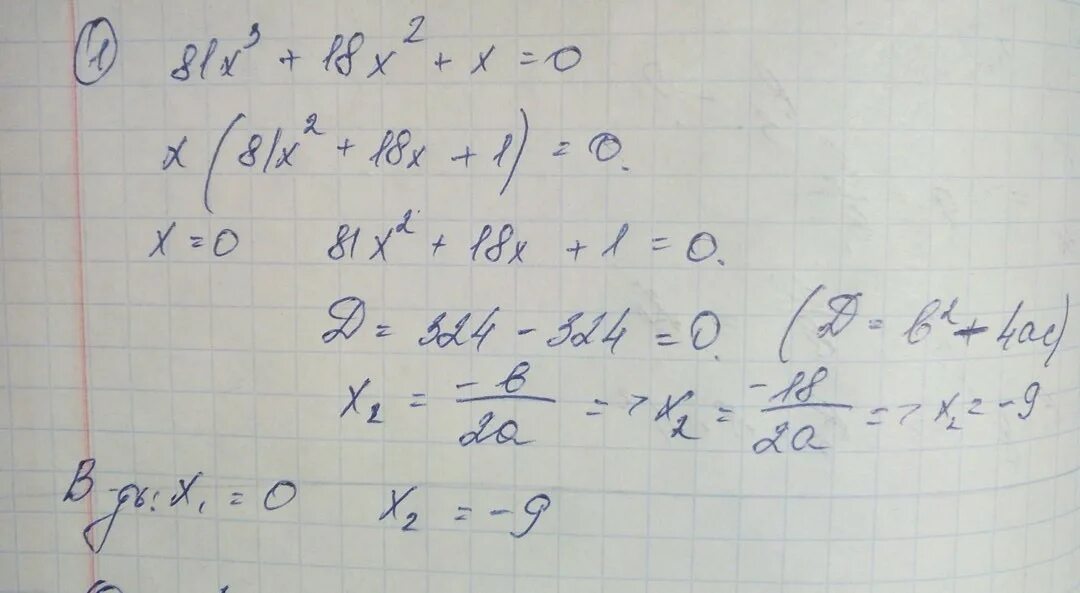 1) 81x³ + 18x² + x = 0
x(81x² + 18x + 1) = 0.
x = 0 81x² + 18x + 1 = 0.
D = 324 - 324 = 0. (D = b² - 4ac)
x₂ = -b/2a => x₂ = -18/2a => x₂ = -9
В-дь: x₁ = 0 x₂ = -9